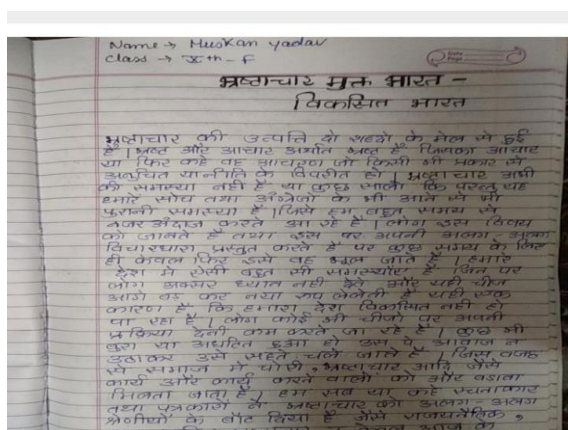 Name → Muskan yadav
Class → Xth - F
Date
Page
भ्रष्टाचार मुक्त भारत -
विकसित भारत
भ्रष्टाचार की उत्पत्ति दो शब्दो के मेल से हुई
है। भ्रष्ट और आचार अर्थात भ्रष्ट है जिसका आचार
या फिर कहे वह आचरण जो किसी भी प्रकार से
अनुचित या नीति के विपरीत हो। भ्रष्टाचार अभी
की समस्या नही है या कुछ सालो कि परन्तु यह
हमारे सोच तथा अंग्रेजो के भी आने से भी
पुरानी समस्या है। जिसे हम बहुत समय से
नजर अंदाज करते आ रहे है। लोग इस विषय
को जानते है तथा इस पर अपनी अलग-अलग
विचारधारा प्रस्तुत करते है पर कुछ समय के लिए
ही केवल फिर इसे वह भूल जाते है। हमारे
देश मे ऐसी बहुत सी समस्याएँ है जिन पर
लोग अक्सर ध्यान नही देते और यही चीज
आगे बढ़ कर नया रूप लेलेती है यही एक
कारण है कि हमारा देश विकसित नही हो
पा रहा है। लोग कोई भी चीजो पर अपनी
प्रक्रिया देनी कम करते जा रहे है। कुछ भी
बुरा या अघटित हुआ हो उस पे आवाज न
उठाकर उसे सहते चले जाते है। जिस वजह
से समाज मे चोरी, भ्रष्टाचार आदि जैसे
कार्य और कार्य करने वालो को और बडावा
मिलता जाता है। हम सब या कहे रचनाकार
तथा पत्रकारो ने भ्रष्टाचार को अलग-अलग
श्रेणीयों के बाँट दिया है जैसे राजयनैतिक,